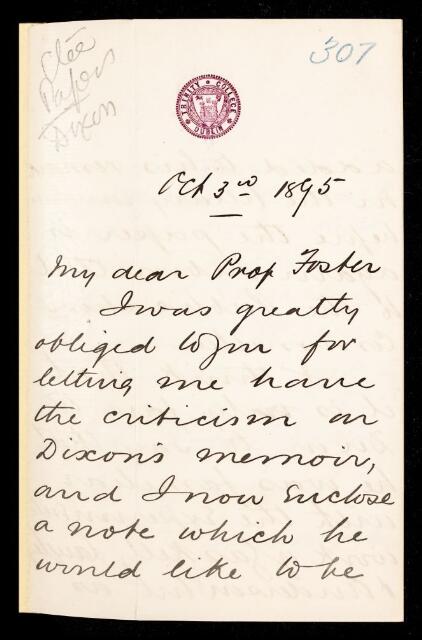 307
Papers
Dixon
TRINITY COLLEGE
DUBLIN
Oct 3rd 1895
My dear Prof Foster
I was greatly
obliged to you for
letting me have
the criticism on
Dixon's memoir,
and I now enclose
a note which he
would like to be